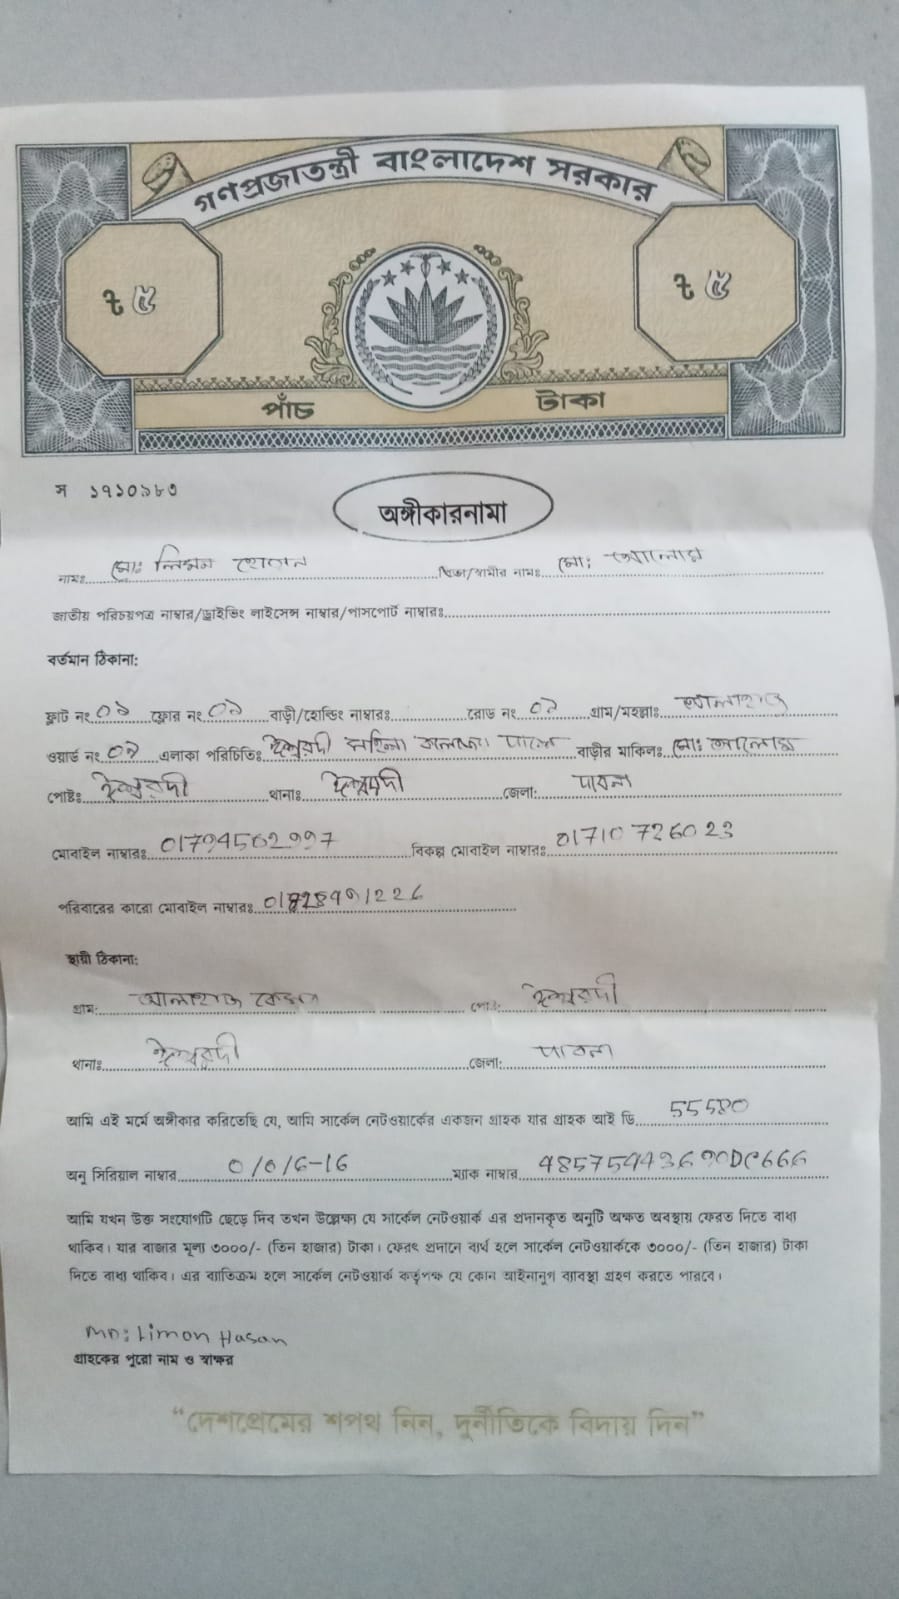 গণপ্রজাতন্ত্রী বাংলাদেশ সরকার
৳ ৫ ৳ ৫
পাঁচ টাকা
স ১৭১০৯৮৩
অঙ্গীকারনামা
নামঃ মোঃ লিমন হোসান পিতা/স্বামীর নামঃ মোঃ আলোম
জাতীয় পরিচয়পত্র নাম্বার/ড্রাইভিং লাইসেন্স নাম্বার/পাসপোর্ট নাম্বারঃ
বর্তমান ঠিকানা:
ফ্লাট নং ০৯ ফ্লোর নং ০৯ বাড়ী/হোল্ডিং নাম্বারঃ রোড নং ০৭ গ্রাম/মহল্লাঃ
ওয়ার্ড নং ০৭ এলাকা পরিচিতিঃ ঈশ্বরদী মহিলা কলেজ পাশে বাড়ীর মালিকঃ মোঃ আলোম
পোষ্টঃ ঈশ্বরদী থানাঃ ঈশ্বরদী জেলা: পাবনা
মোবাইল নাম্বারঃ বিকল্প মোবাইল নাম্বারঃ 01710726023
পরিবারের কারো মোবাইল নাম্বারঃ
স্থায়ী ঠিকানা:
গ্রাম: পোষ্ট: ঈশ্বরদী
থানাঃ ঈশ্বরদী জেলা: পাবনা
আমি এই মর্মে অঙ্গীকার করিতেছি যে, আমি সার্কেল নেটওয়ার্কের একজন গ্রাহক যার গ্রাহক আই ডি 55580
অনু সিরিয়াল নাম্বার 0/0/6-16 ম্যাক নাম্বার
আমি যখন উক্ত সংযোগটি ছেড়ে দিব তখন উল্লেক্ষ্য যে সার্কেল নেটওয়ার্ক এর প্রদানকৃত অনুটি অক্ষত অবস্থায় ফেরত দিতে বাধ্য
থাকিব। যার বাজার মূল্য ৩০০০/- (তিন হাজার) টাকা। ফেরৎ প্রদানে ব্যর্থ হলে সার্কেল নেটওয়ার্ককে ৩০০০/- (তিন হাজার) টাকা
দিতে বাধ্য থাকিব। এর ব্যতিক্রম হলে সার্কেল নেটওয়ার্ক কর্তৃপক্ষ যে কোন আইনানুগ ব্যাবস্থা গ্রহণ করতে পারবে।
MD: Limon Hasan
গ্রাহকের পুরো নাম ও স্বাক্ষর
“দেশপ্রেমের শপথ নিন, দুর্নীতিকে বিদায় দিন”